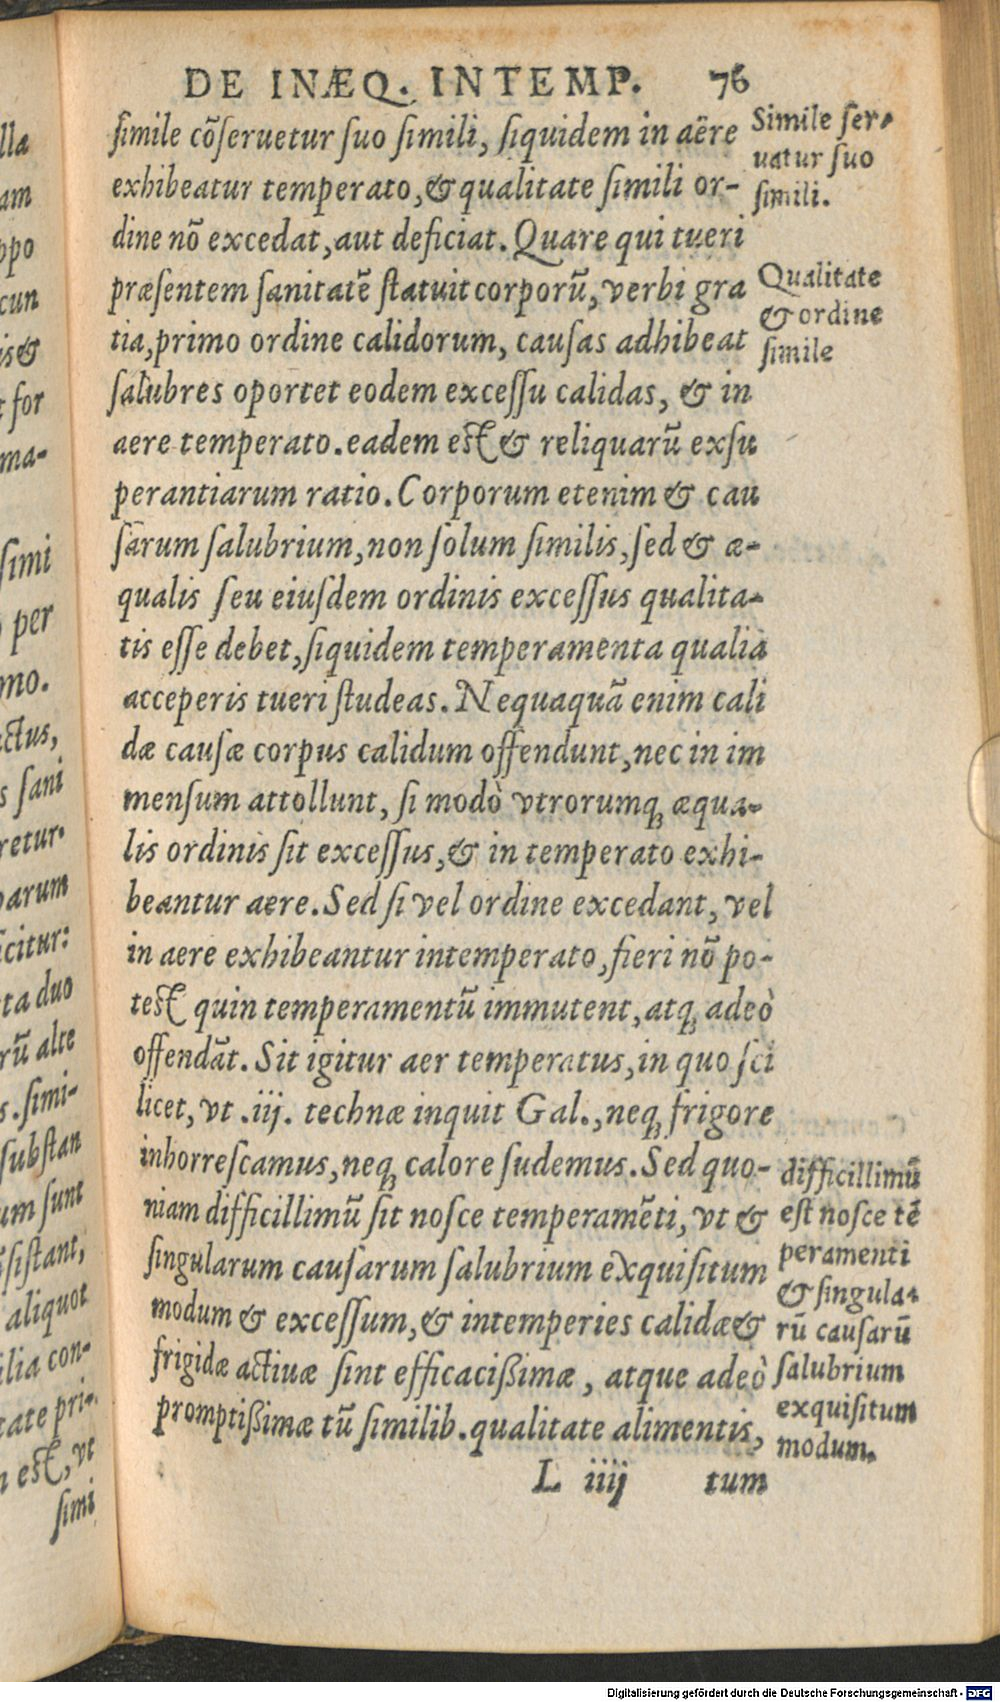 DE INÆQ. INTEMP. 76
simile cõseruetur suo simili, siquidem in aëre
exhibeatur temperato, & qualitate simili or-
dine nõ excedat, aut deficiat. Quare qui tueri
præsentem sanitatẽ statuit corporũ, verbi gra
tia, primo ordine calidorum, causas adhibeat
salubres oportet eodem excessu calidas, & in
aere temperato. eadem est & reliquarũ exsu
perantiarum ratio. Corporum etenim & cau
sarum salubrium, non solum similis, sed & æ-
qualis seu eiusdem ordinis excessus qualita-
tis esse debet, siquidem temperamenta qualia
acceperis tueri studeas. Nequaquã enim cali
dæ causæ corpus calidum offendunt, nec in im
mensum attollunt, si modò vtrorumq; æqua-
lis ordinis sit excessus, & in temperato exhi-
beantur aere. Sed si vel ordine excedant, vel
in aere exhibeantur intemperato, fieri nõ po-
test quin temperamentũ immutent, atq; adeò
offendãt. Sit igitur aer temperatus, in quo sci
licet, vt .iij. technæ inquit Gal., neq; frigore
inhorrescamus, neq; calore sudemus. Sed quo-
niam difficillimũ sit nosce temperamẽti, vt &
singularum causarum salubrium exquisitum
modum & excessum, & intemperies calidæ &
frigidæ actiuæ sint efficacißimæ, atque adeò
promptißimæ tũ similib. qualitate alimentis,
L iiij tum
Simile ser-
uatur suo
simili.
Qualitate
& ordine
simile
difficillimũ
est nosce tẽ
peramenti
& singula-
rũ causarũ
salubrium
exquisitum
modum.
lla
am
ppo
cun
is &
t for
ma-
simi
per
mo.
actus,
s sani
retur.
parum
icitur:
ta duo
rũ alte
s. simi-
substan
um sunt
sistant,
aliquot
ilia con-
tate pri-
n est, vt
simi
Digitalisierung gefördert durch die Deutsche Forschungsgemeinschaft - DFG